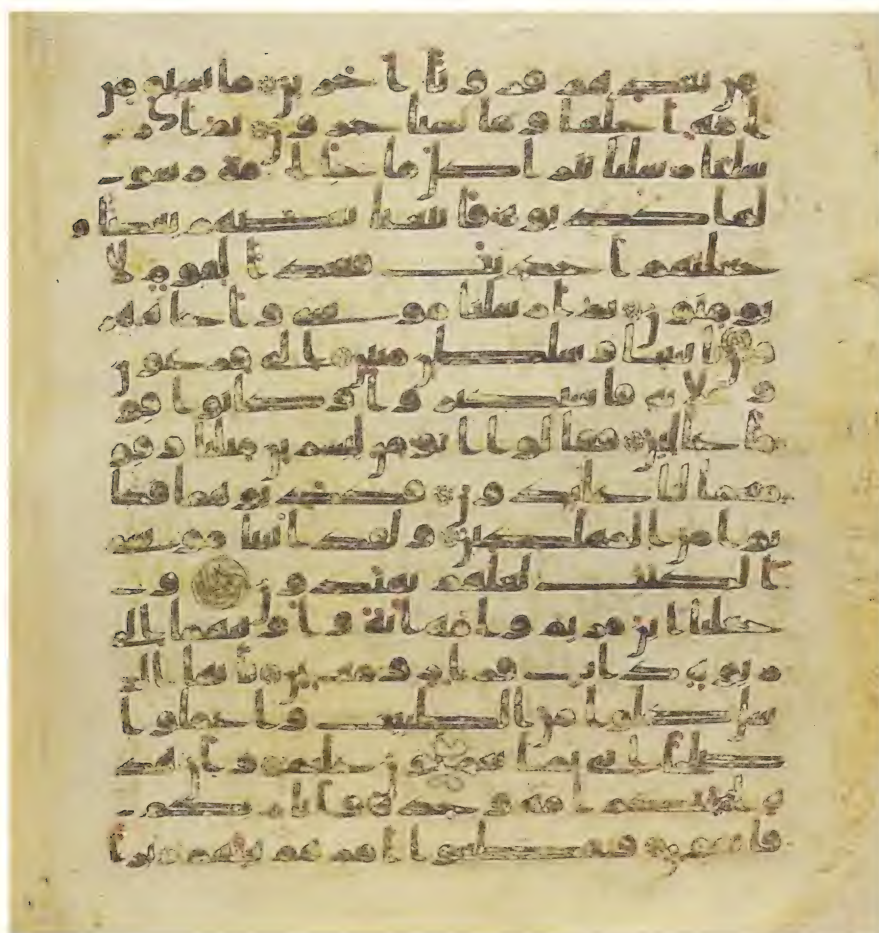 من بعدهم قرونا اخرين ما تسبق من
امة اجلها وما يستخرون ثم ار
سلنا رسلنا تترا كل ما جا امة رسو
لها كذبوه فاتبعنا بعضهم بعضا و
جعلنهم احديث فبعدا لقوم لا
يومنون ثم ارسلنا موسى واخاه
هرون بايتنا وسلطن مبين الى فرعون
وملايه فاستكبروا وكانوا قو
ما عالين فقالوا انومن لبشرين مثلنا وقو
مهما لنا عبدون فكذبوهما فكا
نوا من المهلكين ولقد اتينا موسى
الكتب لعلهم يهتدون و
جعلنا ابن مريم وامه اية واوينهما الى
ربوة ذات قرار ومعين يايها الر
سل كلوا من الطيبت واعملوا
صلحا انى بما تعملون عليم وان هذ
ه امتكم امة وحدة وانا ربكم
فاتقون فتقطعوا امرهم بينهم زبرا